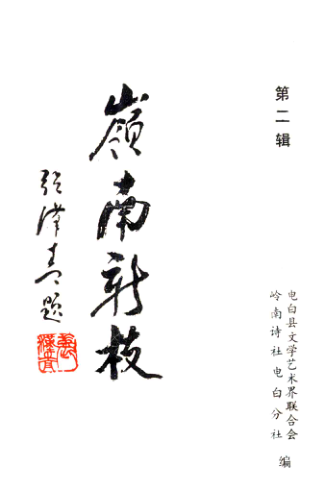 第二辑
嶺南新枝
张汉青题
电白县文学艺术界联合会
岭南诗社电白分社
编